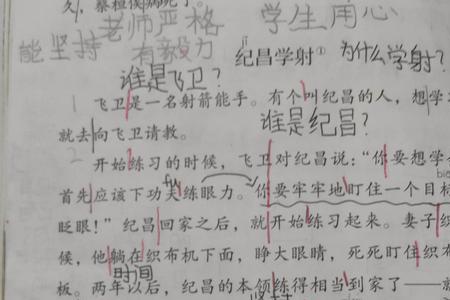 久，蔡桓侯病死了。
老师严格 学生用心
能坚持 有毅力
jì
纪昌学射① 为什么学射？
谁是飞卫？
1 飞卫是一名射箭能手。有个叫纪昌的人，想学
就去向飞卫请教。 谁是纪昌？
2 开始练习的时候，飞卫对纪昌说：“你要想学
fu
首先应该下功夫练眼力。你要牢牢地盯住一个目标
眨眼！”纪昌回家之后，就开始练习起来。妻子织
候，他躺在织布机下面，睁大眼睛，死死盯住织布
时间
板。两年以后，纪昌的本领练得相当到家了——就